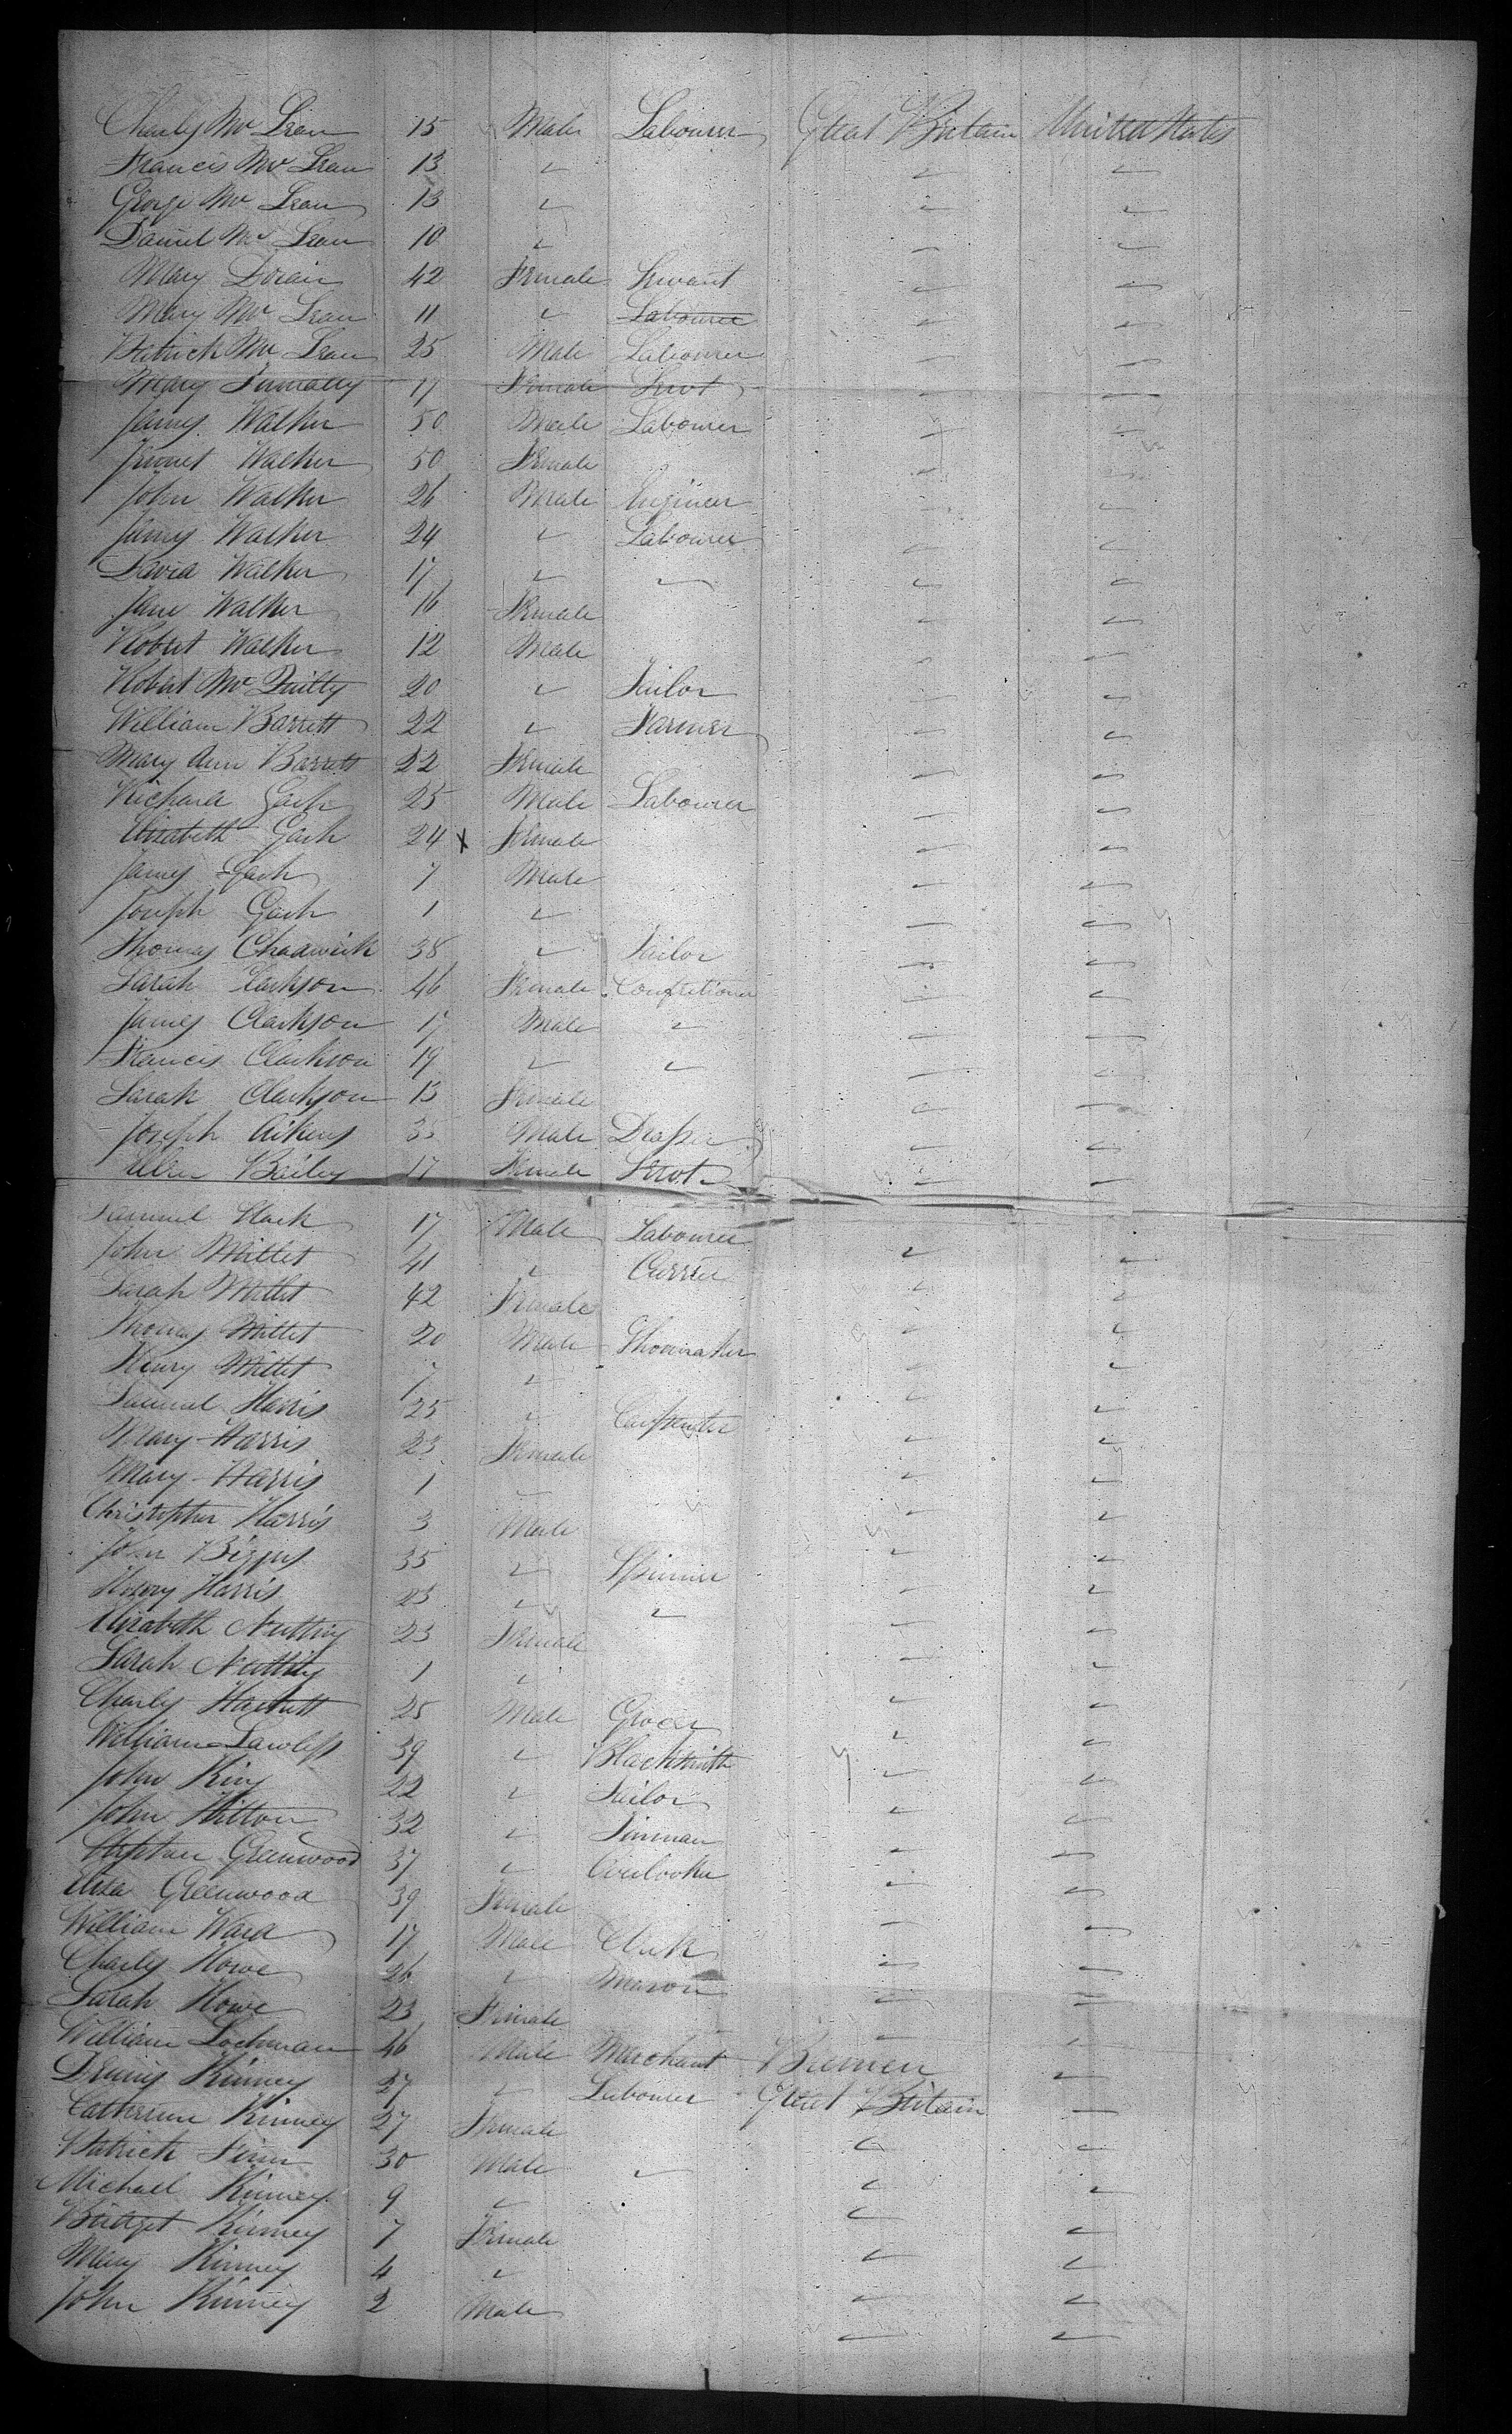 Charles Mc Lean 15 Male Labourer Great Britain United States
Francis Mc Lean 13 "
George Mc Lean 13 "
Daniel Mc Lean 10 "
Mary Doran 42 Female Servant
Mary Mc Lean 11 " Labourer
Patrick Mc Lean 25 Male Labourer
Mary 17 Female Servt
James Walker 50 Male Labourer
Jennet Walker 50 Female
John Walker 26 Male Engineer
James Walker 24 " Labourer
David Walker 17 " "
Jane Walker 16 Female
Robert Walker 12 Male
Robert Mc Quilty 20 " Tailor
William Barrett 22 " Farmer
Mary Ann Barrett 22 Female
Richard Gash 25 Male Labourer
Elizabeth Gash 24 x Female
James Gash 7 Male
Joseph Gash 1 "
Thomas Chadwick 38 " Tailor
Sarah Clarkson 46 Female Confectioner
James Clarkson 17 Male "
Francis Clarkson 19 " "
Sarah Clarkson 13 Female
Joseph Aikens 35 Male Draper
Ellen Bailey 17 Female Servt
Samuel 17 Male Labourer
John Millet 41 " Currier
Sarah Millet 42 Female
Thomas Millet 20 Male Shoemaker
Henry Millet 7 "
Samuel Harris 25 " Carpenter
Mary Harris 23 Female
Mary Harris 1 "
Christopher Harris 3 Male
John Biggus 35 " Spinner
Henry Harris 23 " "
Elizabeth Nutting 23 Female
Sarah Nutting 1 "
Charles Hackett 25 Male Grocer
William Lawless 39 " Blacksmith
John King 22 " Tailor
John Hilton 32 " Tinman
Stephen Greenwood 37 " Overlooker
Eliza Greenwood 39 Female
William Ward 17 Male Clerk
Charles Howe 26 " Mason
Sarah Howe 23 Female
William Lochman 46 Male Merchant Bremen
Dennis Kinney 27 " Labourer Great Britain
Catherine Kinney 27 Female
Patrick Finn 30 Male "
Michael Kinney 9 "
Bridget Kinney 7 Female
Mary Kinney 4 "
John Kinney 2 Male